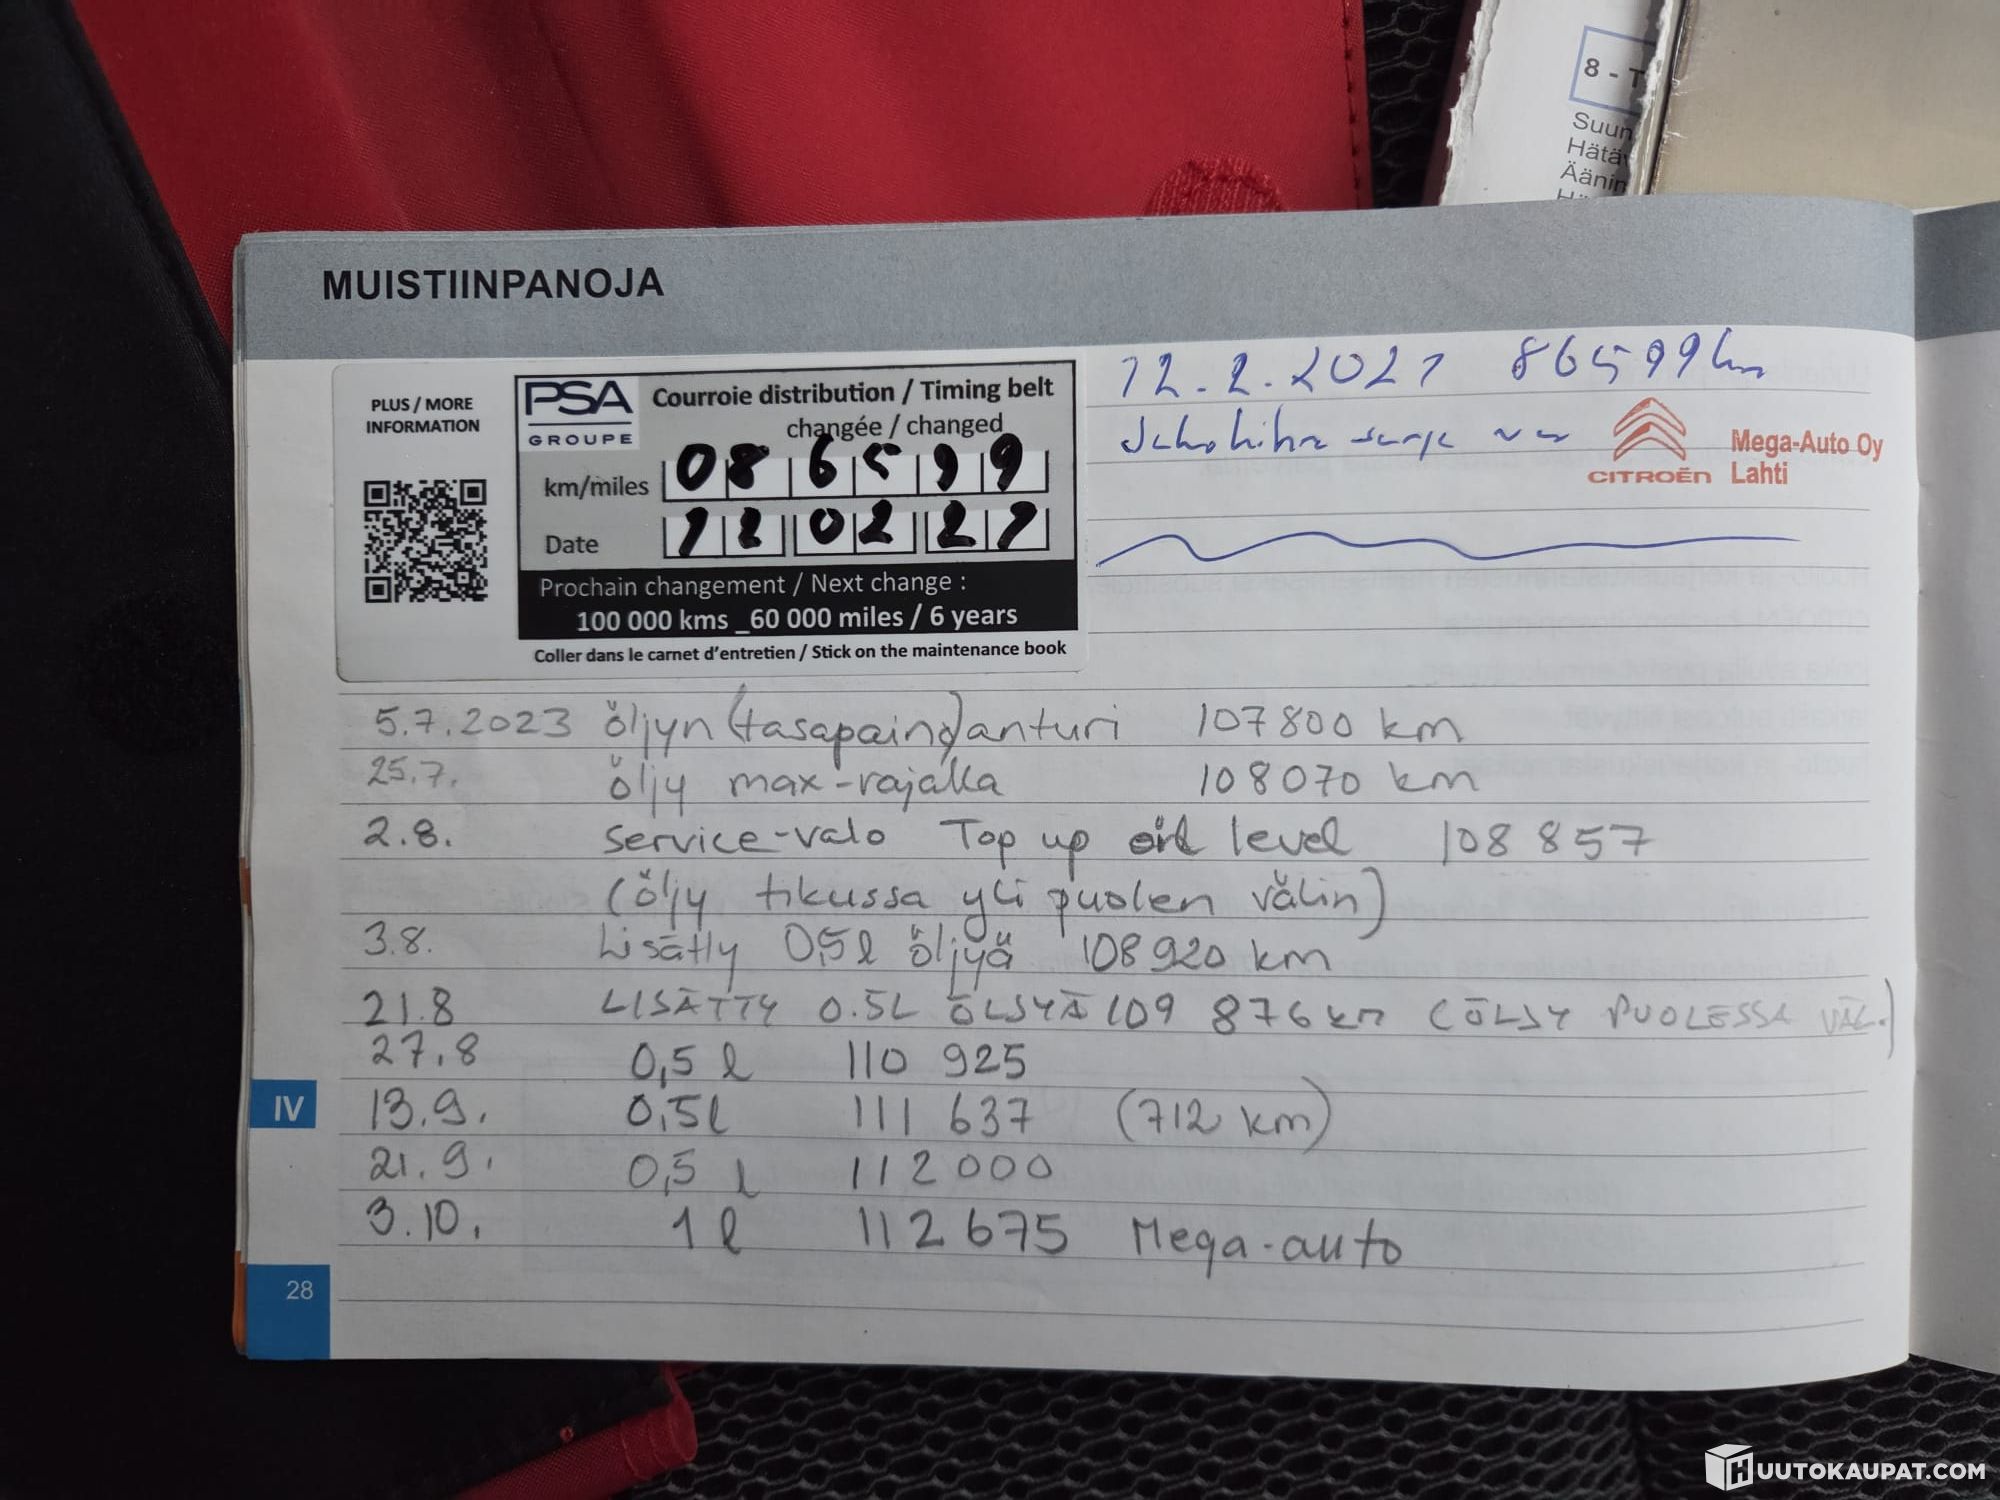 8 - T
Suun
Hätäv
Äänin
MUISTIINPANOJA
PLUS / MORE
INFORMATION
PSA
GROUPE
Courroie distribution / Timing belt
changée / changed
km/miles 086599
Date 12 02 21
Prochain changement / Next change :
100 000 kms _60 000 miles / 6 years
Coller dans le carnet d'entretien / Stick on the maintenance book
12.2.2021 86599km
Jakohihna sarja
CITROËN
Mega-Auto Oy
Lahti
5.7.2023 öljyn (tasapaino)anturi 107800 km
25.7. öljy max-rajalla 108070 km
2.8. service-valo Top up oil level 108 857
(öljy tikussa yli puolen välin)
3.8. Lisätty 0,5l öljyä 108920 km
21.8 LISÄTTY 0.5L ÖLJYÄ 109 876km (ÖLJY PUOLESSA VÄL.)
27.8 0,5 l 110 925
13.9. 0,5l 111 637 (712 km)
21.9. 0,5 l 112000
3.10. 1 l 112675 Mega-auto
IV
28
HUUTOKAUPAT.COM